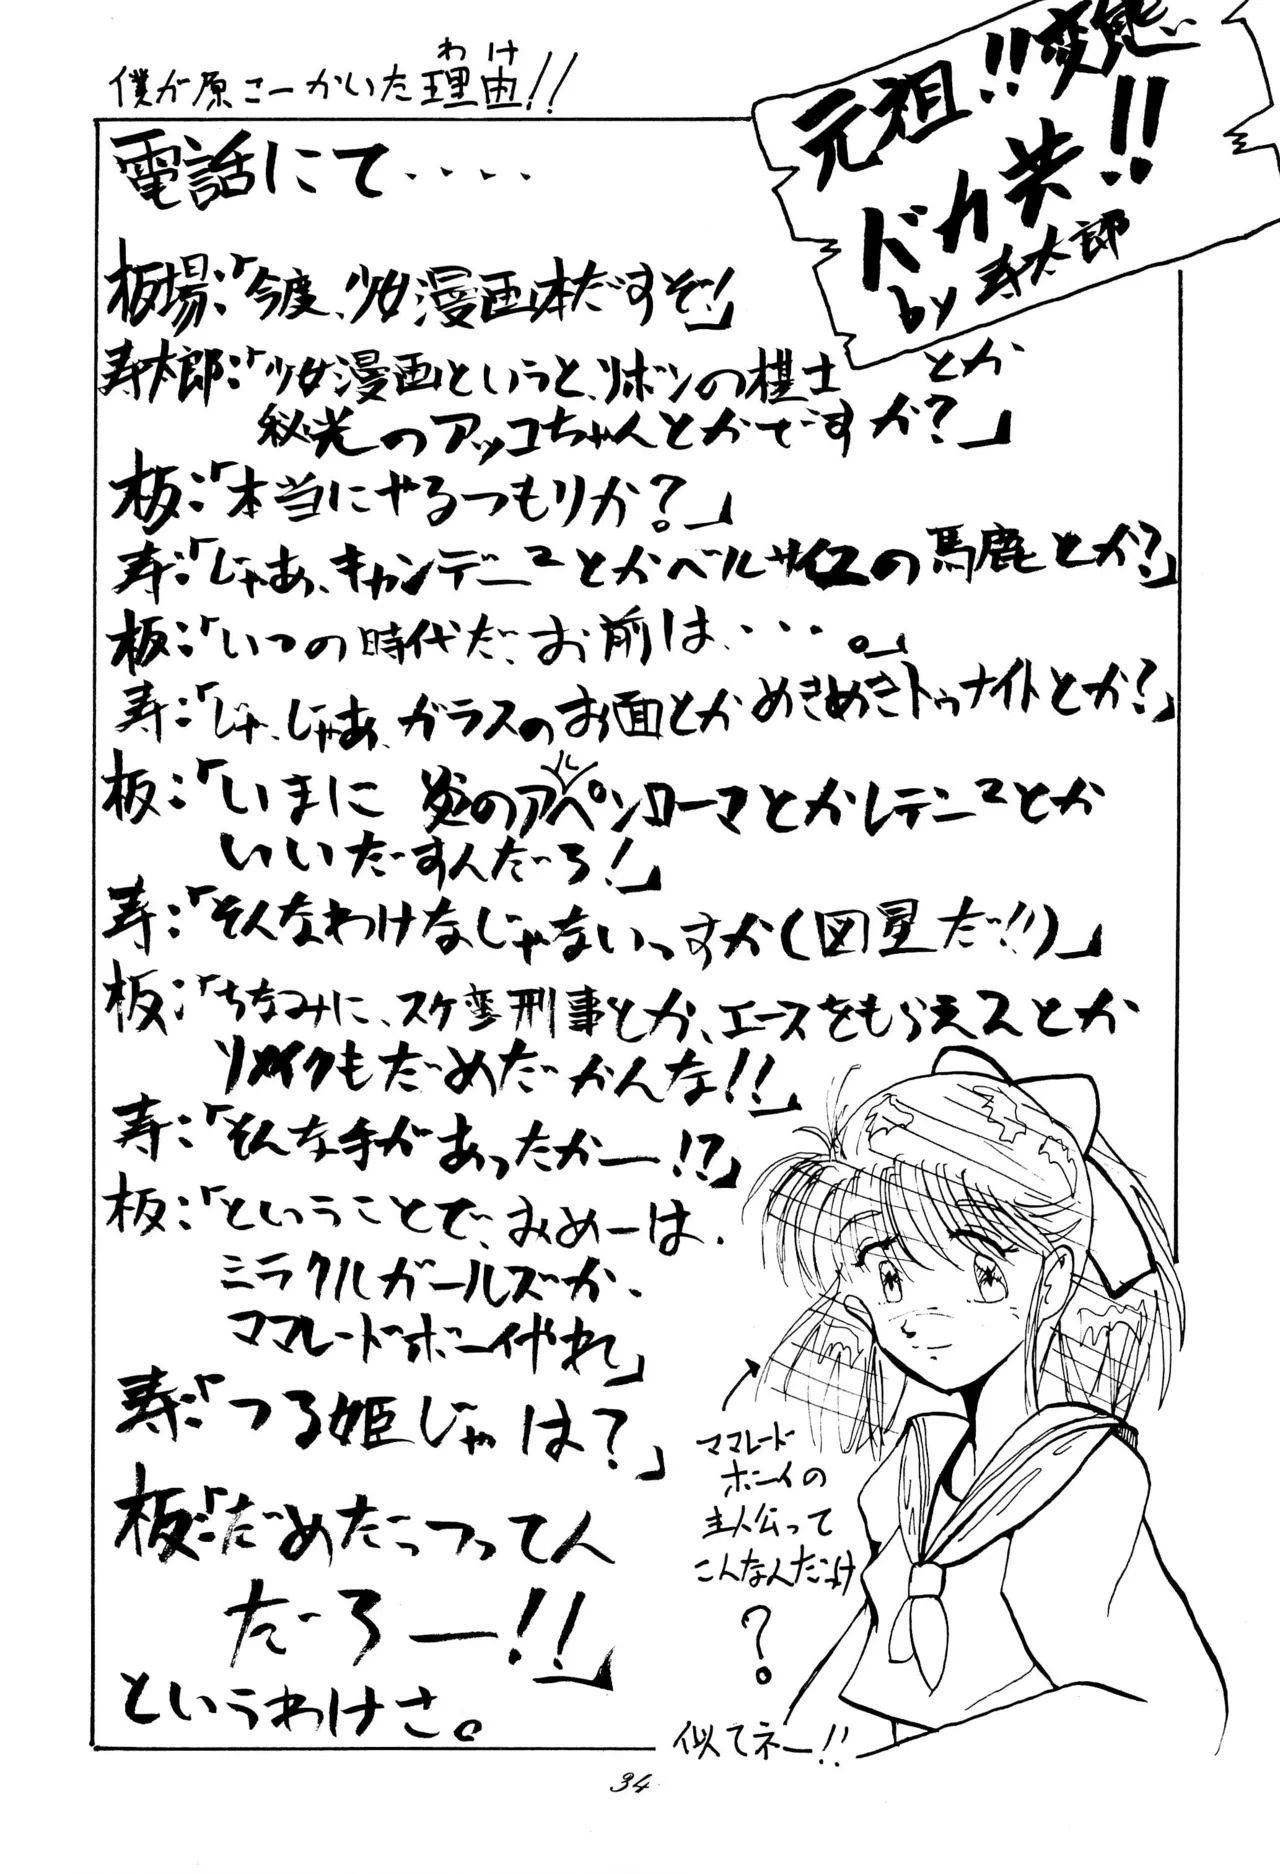 僕が原こーかいた理由!!
わけ
元祖!!変態!!
ドカ
by 寿太郎
電話にて・・・・
板場:「今度、少女漫画本だすぞ!」
寿太郎:「少女漫画というと、リボンの棋士とか
秘光のアッコちゃんとかですか?」
板:「本当にやるつもりか?」
寿:「じゃあ、キャンデニ²とかベルサイユの馬鹿とか?」
板:「いつの時代だ、お前は・・・。」
寿:「じゃ、じゃあ、ガラスのお面とかめきめきトゥナイトとか?」
板:「いまに 炎のアルペンローマとかレテニ²とか
いいだすんだろ!」
寿:「そんなわけなじゃないっすか(図星だ!!)」
板:「ちなみに、スケ変刑事とか、エースをもらえ2とか
リメイクもだめだかんな!!」
寿:「そんな手があったかー!?」
板:「ということで、おめーは、
ミラクルガールズか、
ママレードボーイやれ」
寿:「つる姫じゃは?」
板:「だめだっつってん
だろー!!」
というわけさ。
ママレード
ボーイの
主人公って
こんなんだっけ
?
似てネー!!
34